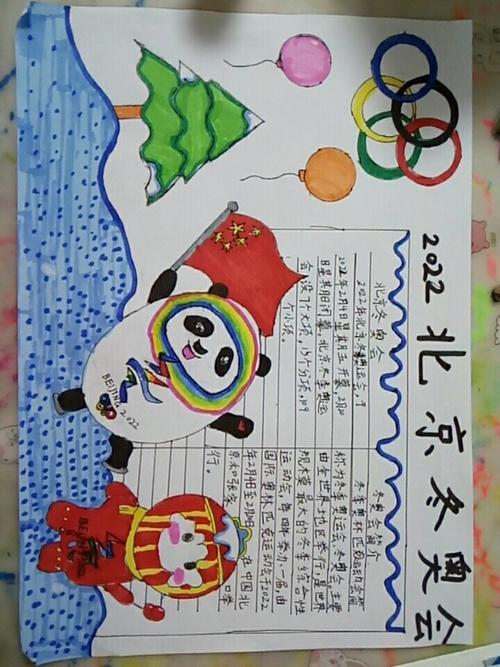 2022北京冬奥会
北京冬奥会
2022年北京冬奥运会,于
2022年2月4日星期五开幕,2月20
日星期日闭幕,北京冬季奥运
会设7个大项,15个分项,109
个小项。
冬奥会简介
冬季奥林匹克运动会简
称为冬季奥运会、冬奥会。主要
由全世界地区举行,是世界
规模最大的冬季综合性
运动会,每四年举办一届,由
国际奥林匹克运动会于2022
年2月4日至2月20日在中国北
京和张家口举
行。
BEIJING 2022